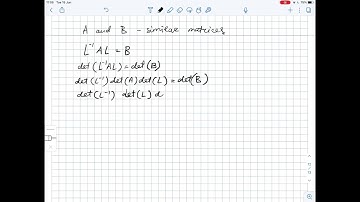 11:16 Tue 15 Jun
A and B - similar matrices
L⁻¹ A L = B
det (L⁻¹ A L) = det (B)
det (L⁻¹) det (A) det (L) = det (B)
det (L⁻¹) det (L) d